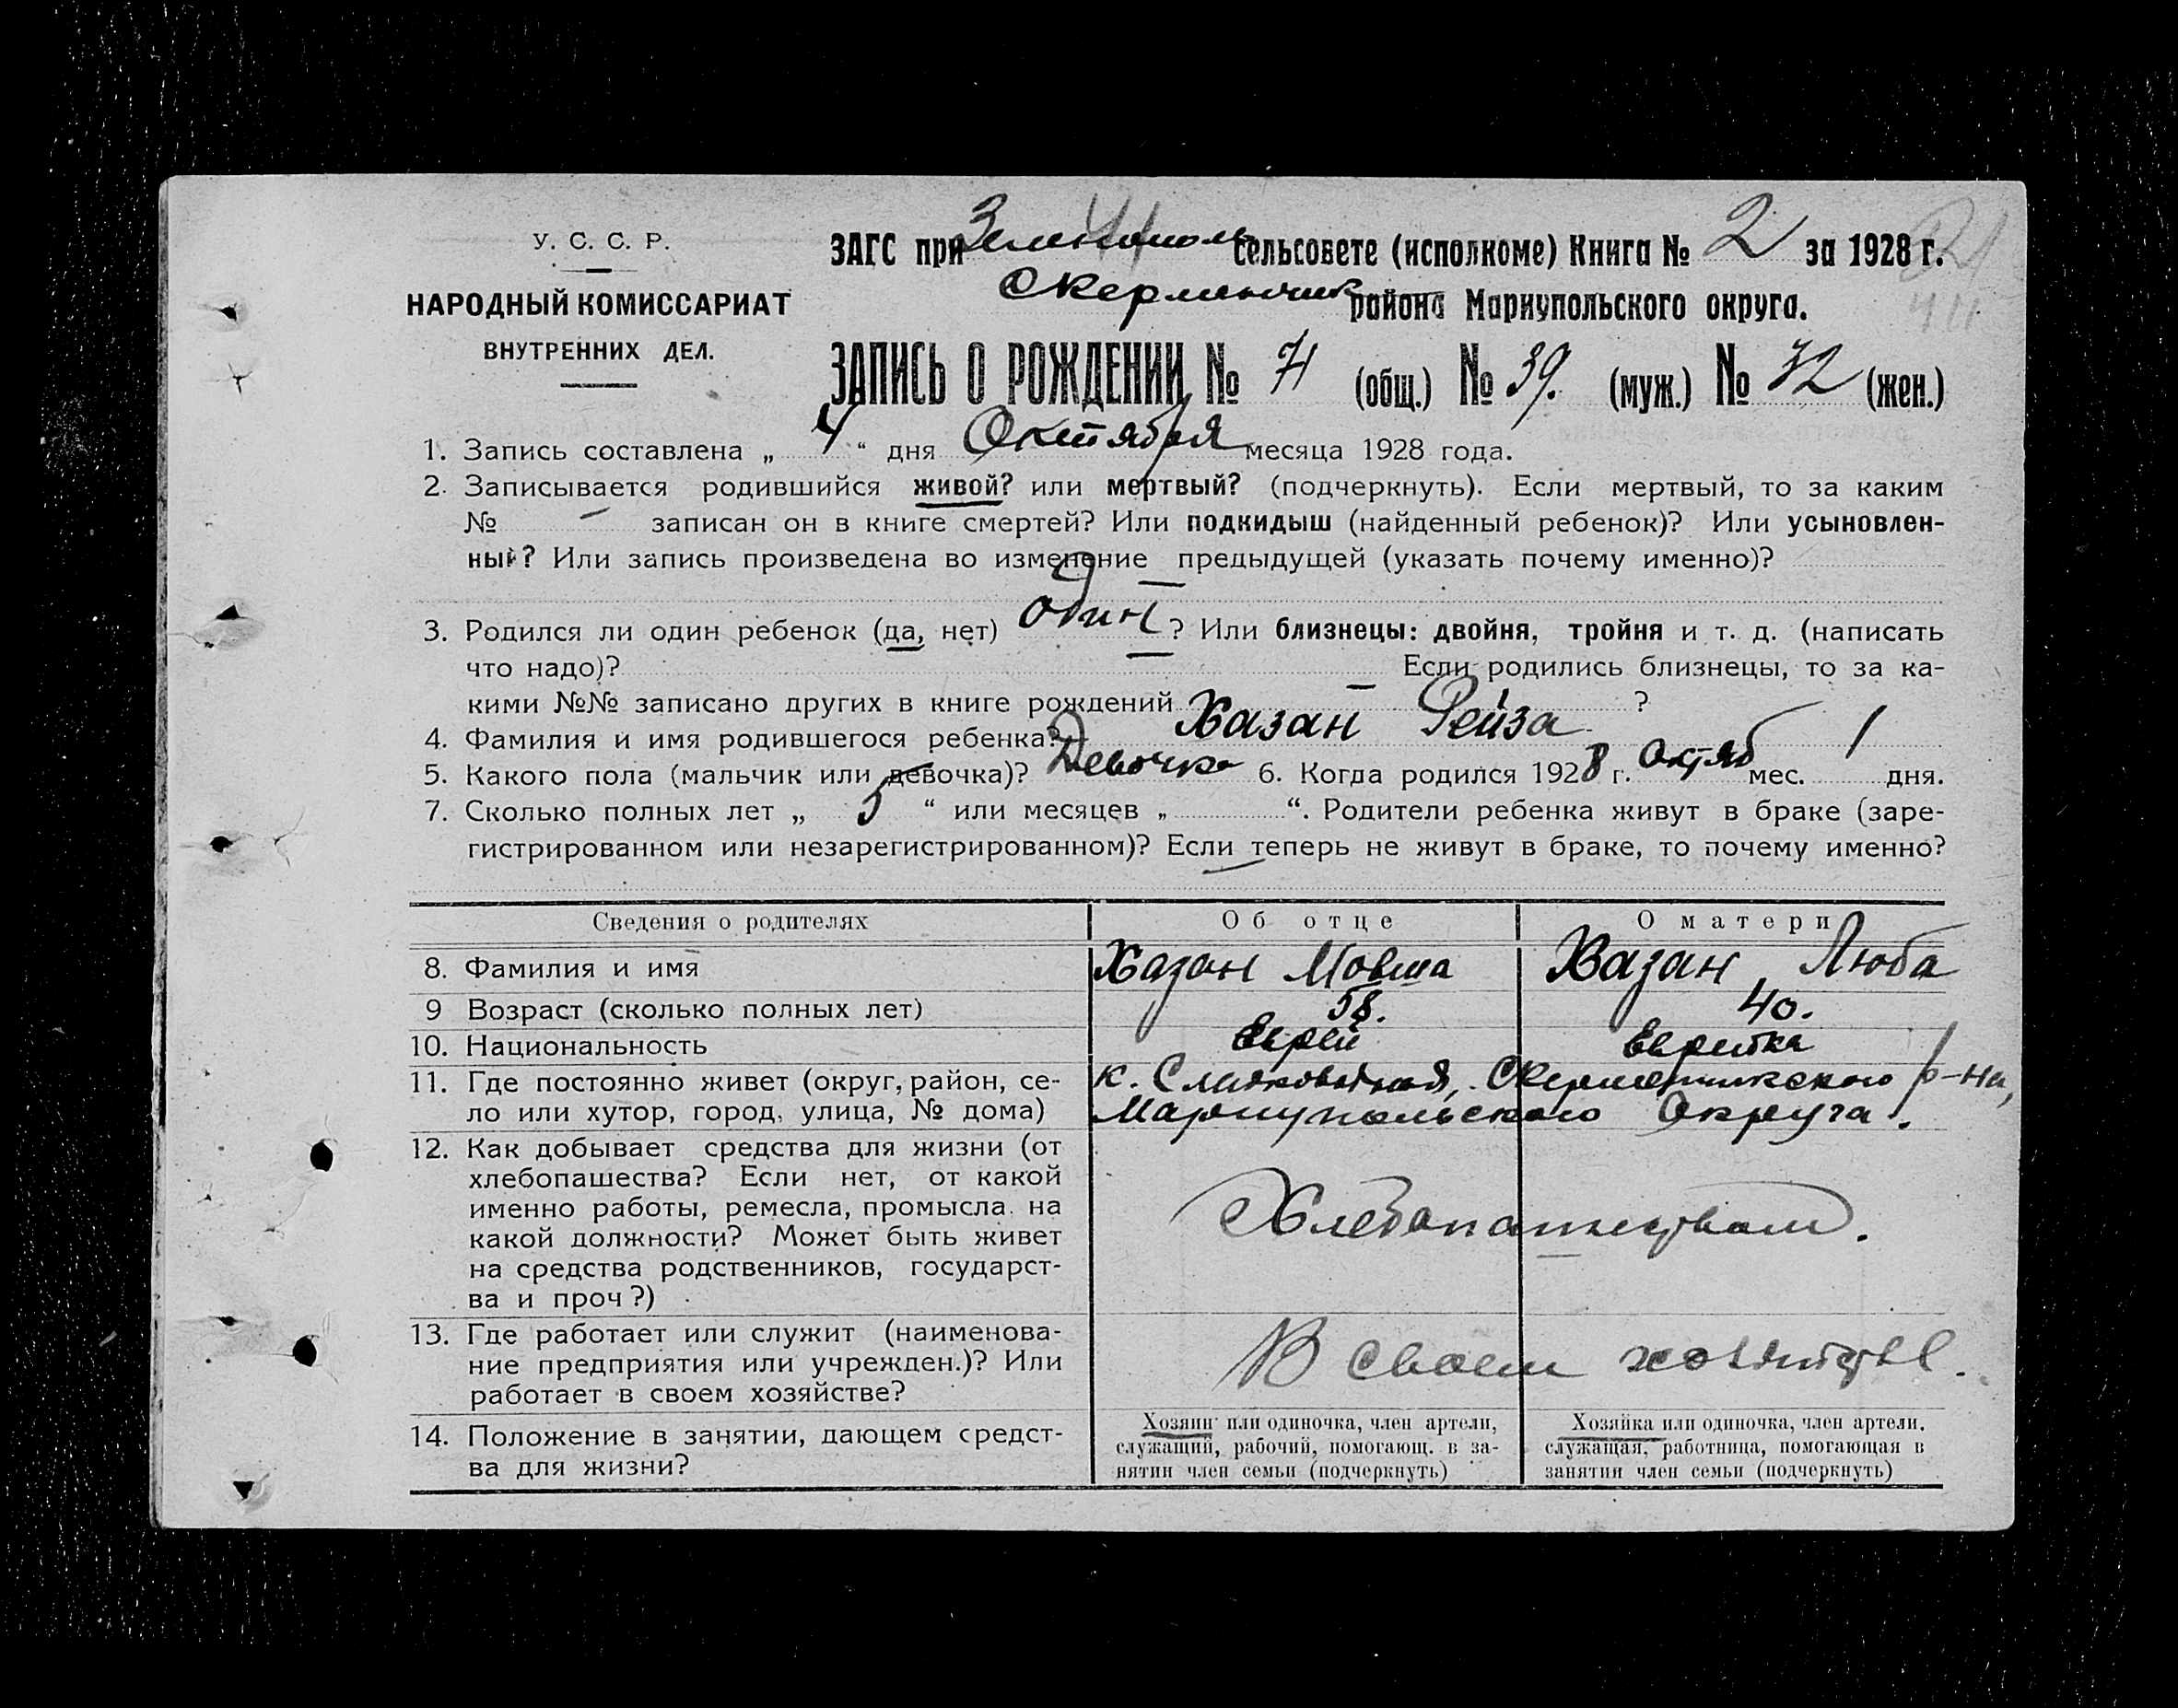 У. С. С. Р.
НАРОДНЫЙ КОМИССАРИАТ
ВНУТРЕННИХ ДЕЛ.
ЗАГС при Зеленополь сельсовете (исполкоме) Книга № 2 за 1928 г.
Скерменчик района Мариупольского округа.
ЗАПИСЬ О РОЖДЕНИИ № 71 (общ.) № 39. (муж.) № 32 (жен.)
1. Запись составлена „ 4 “ дня Октября месяца 1928 года.
2. Записывается родившийся живой? или мертвый? (подчеркнуть). Если мертвый, то за каким
№ — записан он в книге смертей? Или подкидыш (найденный ребенок)? Или усыновлен-
ный? Или запись произведена во изменение предыдущей (указать почему именно)?
3. Родился ли один ребенок (да, нет) один ? Или близнецы: двойня, тройня и т. д. (написать
что надо)? — Если родились близнецы, то за ка-
кими №№ записано других в книге рождений — ?
4. Фамилия и имя родившегося ребенка? Хазан Рейза
5. Какого пола (мальчик или девочка)? Девочка 6. Когда родился 1928 г. Октяб мес. 1 дня.
7. Сколько полных лет „ 5 “ или месяцев „ “. Родители ребенка живут в браке (заре-
гистрированном или незарегистрированном)? Если теперь не живут в браке, то почему именно?
Сведения о родителях Об отце О матери
8. Фамилия и имя Хазан Мовша Хазан Люба
9 Возраст (сколько полных лет) 58. 40.
10. Национальность Еврей Еврейка
11. Где постоянно живет (округ, район, се- к. Сладководная, Скерменчикского р-на,
ло или хутор, город, улица, № дома) Мариупольского Округа.
12. Как добывает средства для жизни (от
хлебопашества? Если нет, от какой
именно работы, ремесла, промысла, на Хлебопашеством.
какой должности? Может быть живет
на средства родственников, государст-
ва и проч?)
13. Где работает или служит (наименова-
ние предприятия или учрежден.)? Или В своем хозяйстве.
работает в своем хозяйстве?
14. Положение в занятии, дающем средст-
ва для жизни?
Хозяин или одиночка, член артели,
служащий, рабочий, помогающ. в за-
нятии член семьи (подчеркнуть)
Хозяйка или одиночка, член артели,
служащая, работница, помогающая в
занятии член семьи (подчеркнуть)